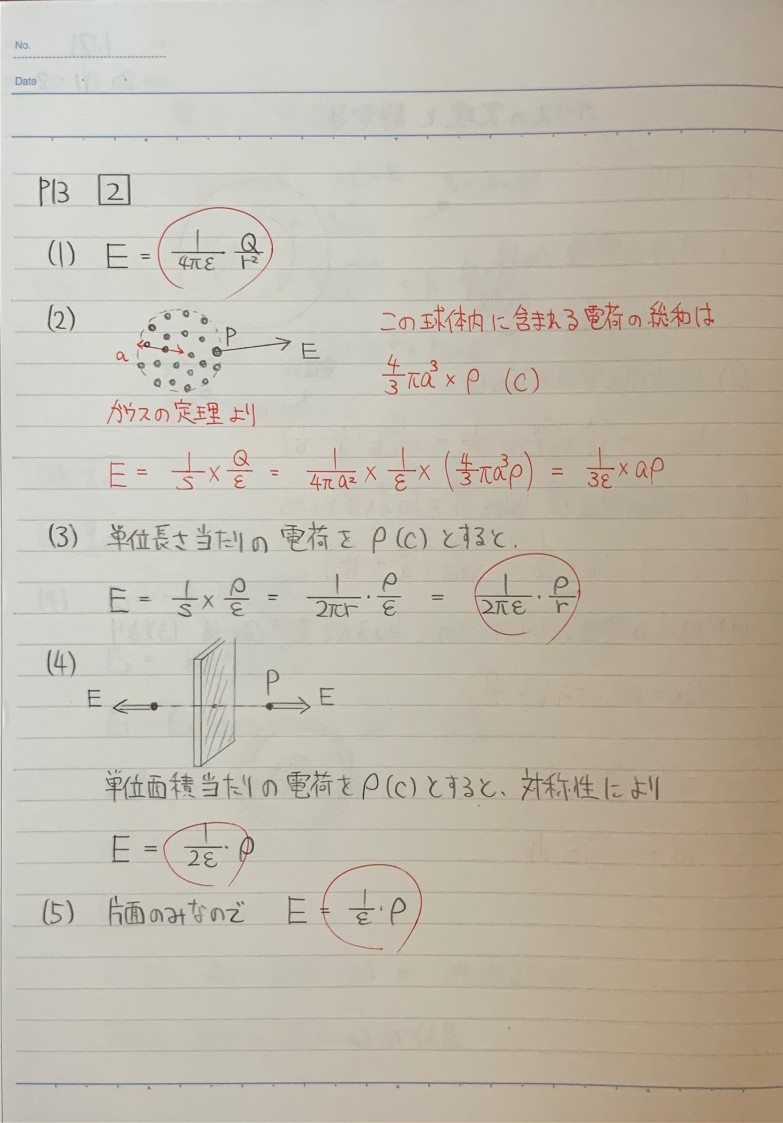 No.
Date
P13 2
(1) E = 1/4πε · Q/r²
(2) P E a
この球体内に含まれる電荷の総和は
4/3 πa³ × ρ (C)
ガウスの定理より
E = 1/S × Q/ε = 1/4πa² × 1/ε × (4/3 πa³ρ) = 1/3ε × aρ
(3) 単位長さ当たりの電荷を ρ(C) とすると、
E = 1/S × ρ/ε = 1/2πr · ρ/ε = 1/2πε · ρ/r
(4) E P E
単位面積当たりの電荷をρ(C)とすると、対称性により
E = 1/2ε · ρ
(5) 片面のみなので E = 1/ε · ρ